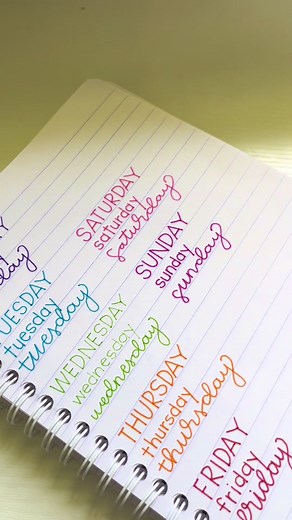 Y
y
day
UESDAY
tuesday
tuesday
WEDNESDAY
wednesday
wednesday
THURSDAY
thursday
thursday
FRIDAY
friday
friday
SATURDAY
saturday
saturday
SUNDAY
sunday
sunday